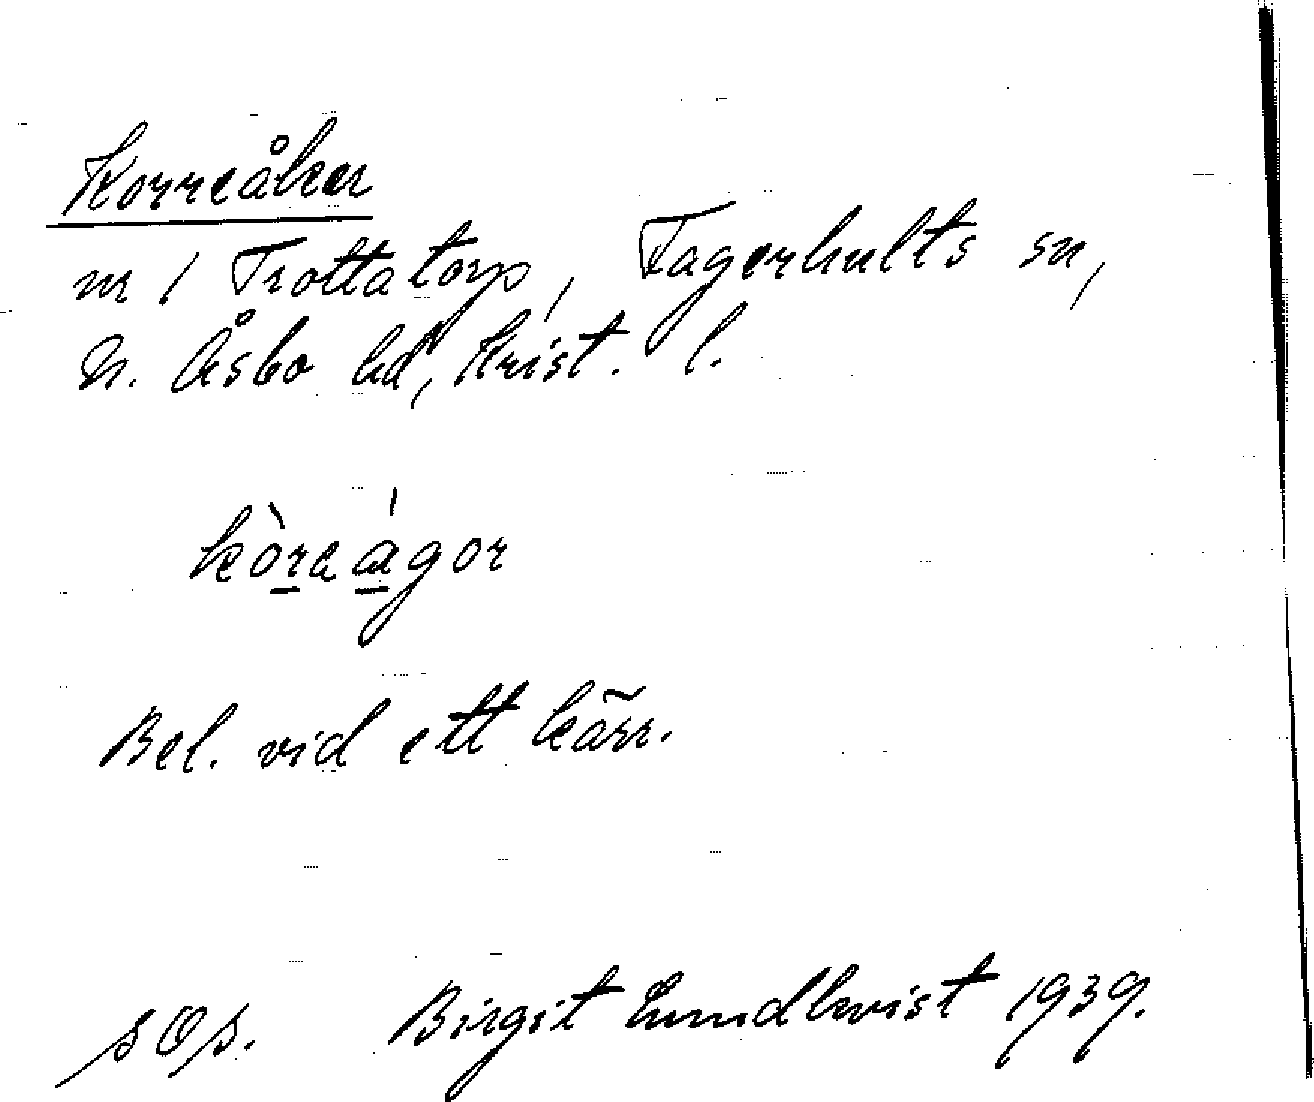 Korreåker
nr 1 Trottatorp, Fagerhults sn,
N. Åsbo hd, Krist. l.
kòreágor
Bel. vid ett kärr.
s Os. Birgit Lundkvist 1939.